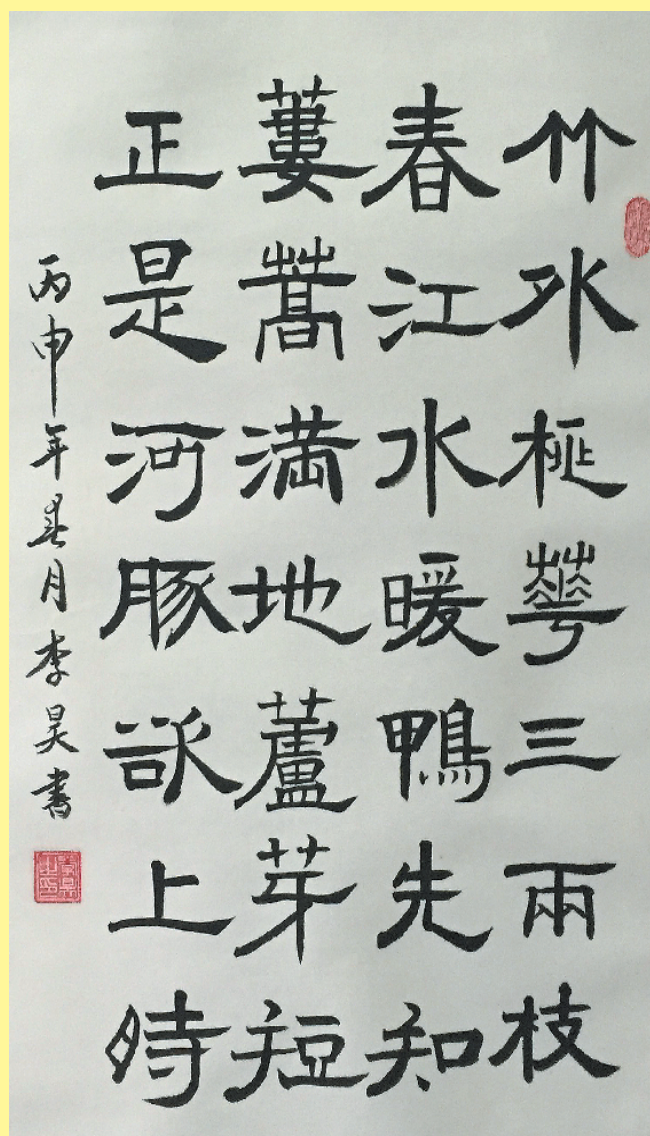 竹外桃華三兩枝
春江水暖鴨先知
蔞蒿満地蘆芽短
正是河豚欲上時
丙申年春月李昊書